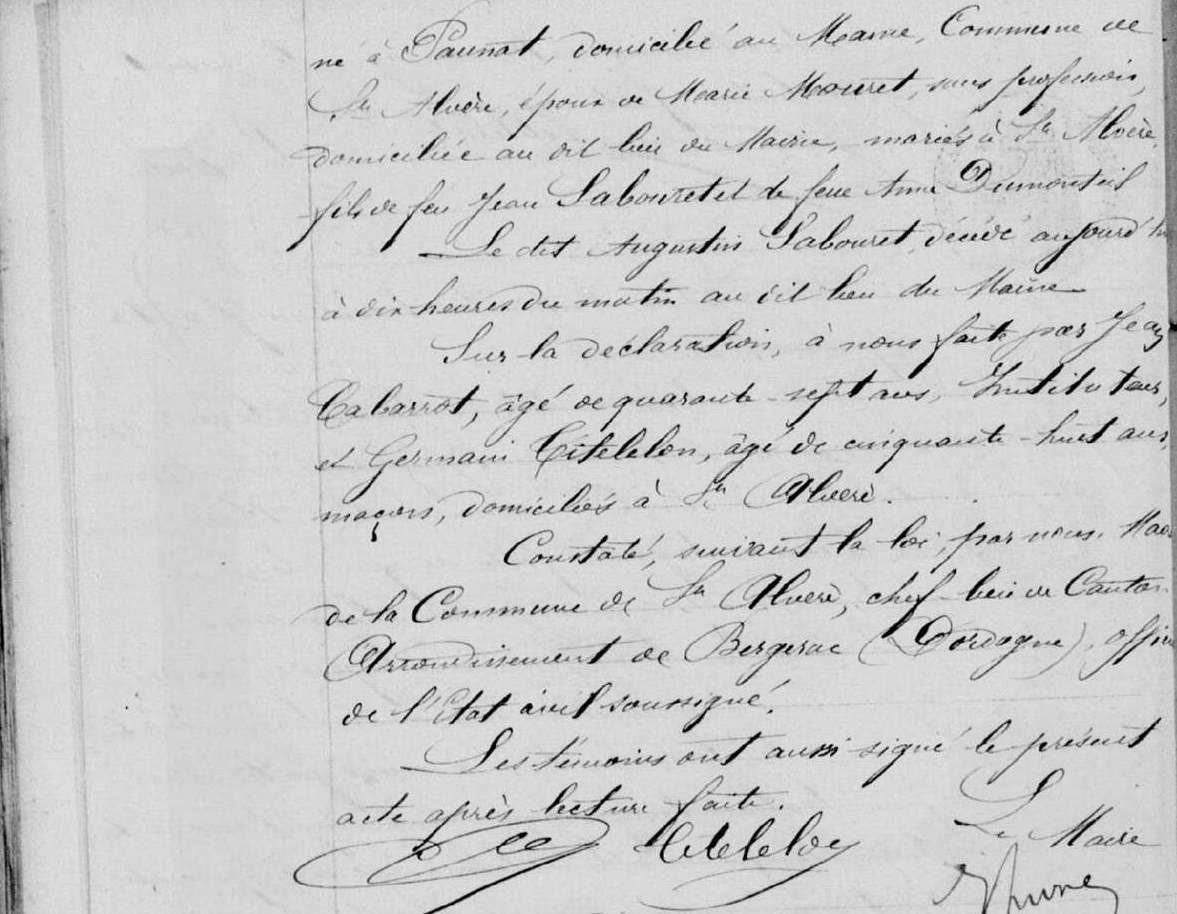 né à Paunat, domicilié au Maine, Commune de
St Alvère, époux de Marie Mouret, sans profession,
domiciliée au dit lieu du Maine, mariés à St Alvère,
fils de feu Jean Labouret et de feue Anne Dumonteil
Le dit Augustin Labouret, décédé aujourd'hu
à dix heures du matin au dit lieu du Maine
Sur la déclaration, à nous faite par Jean
Cabarrot, âgé de quarante-sept ans, Instituteur,
et Germain Citelelon, âgé de cinquante-huit ans,
maçon, domiciliés à St Alvère.
Constaté, suivant la loi, par nous, Mai
de la Commune de St Alvère, chef-lieu de Canton
Arrondissement de Bergerac (Dordogne), offici
de l'Etat civil soussigné.
Les témoins ont aussi signé le présent
acte après lecture faite.
Le Maire